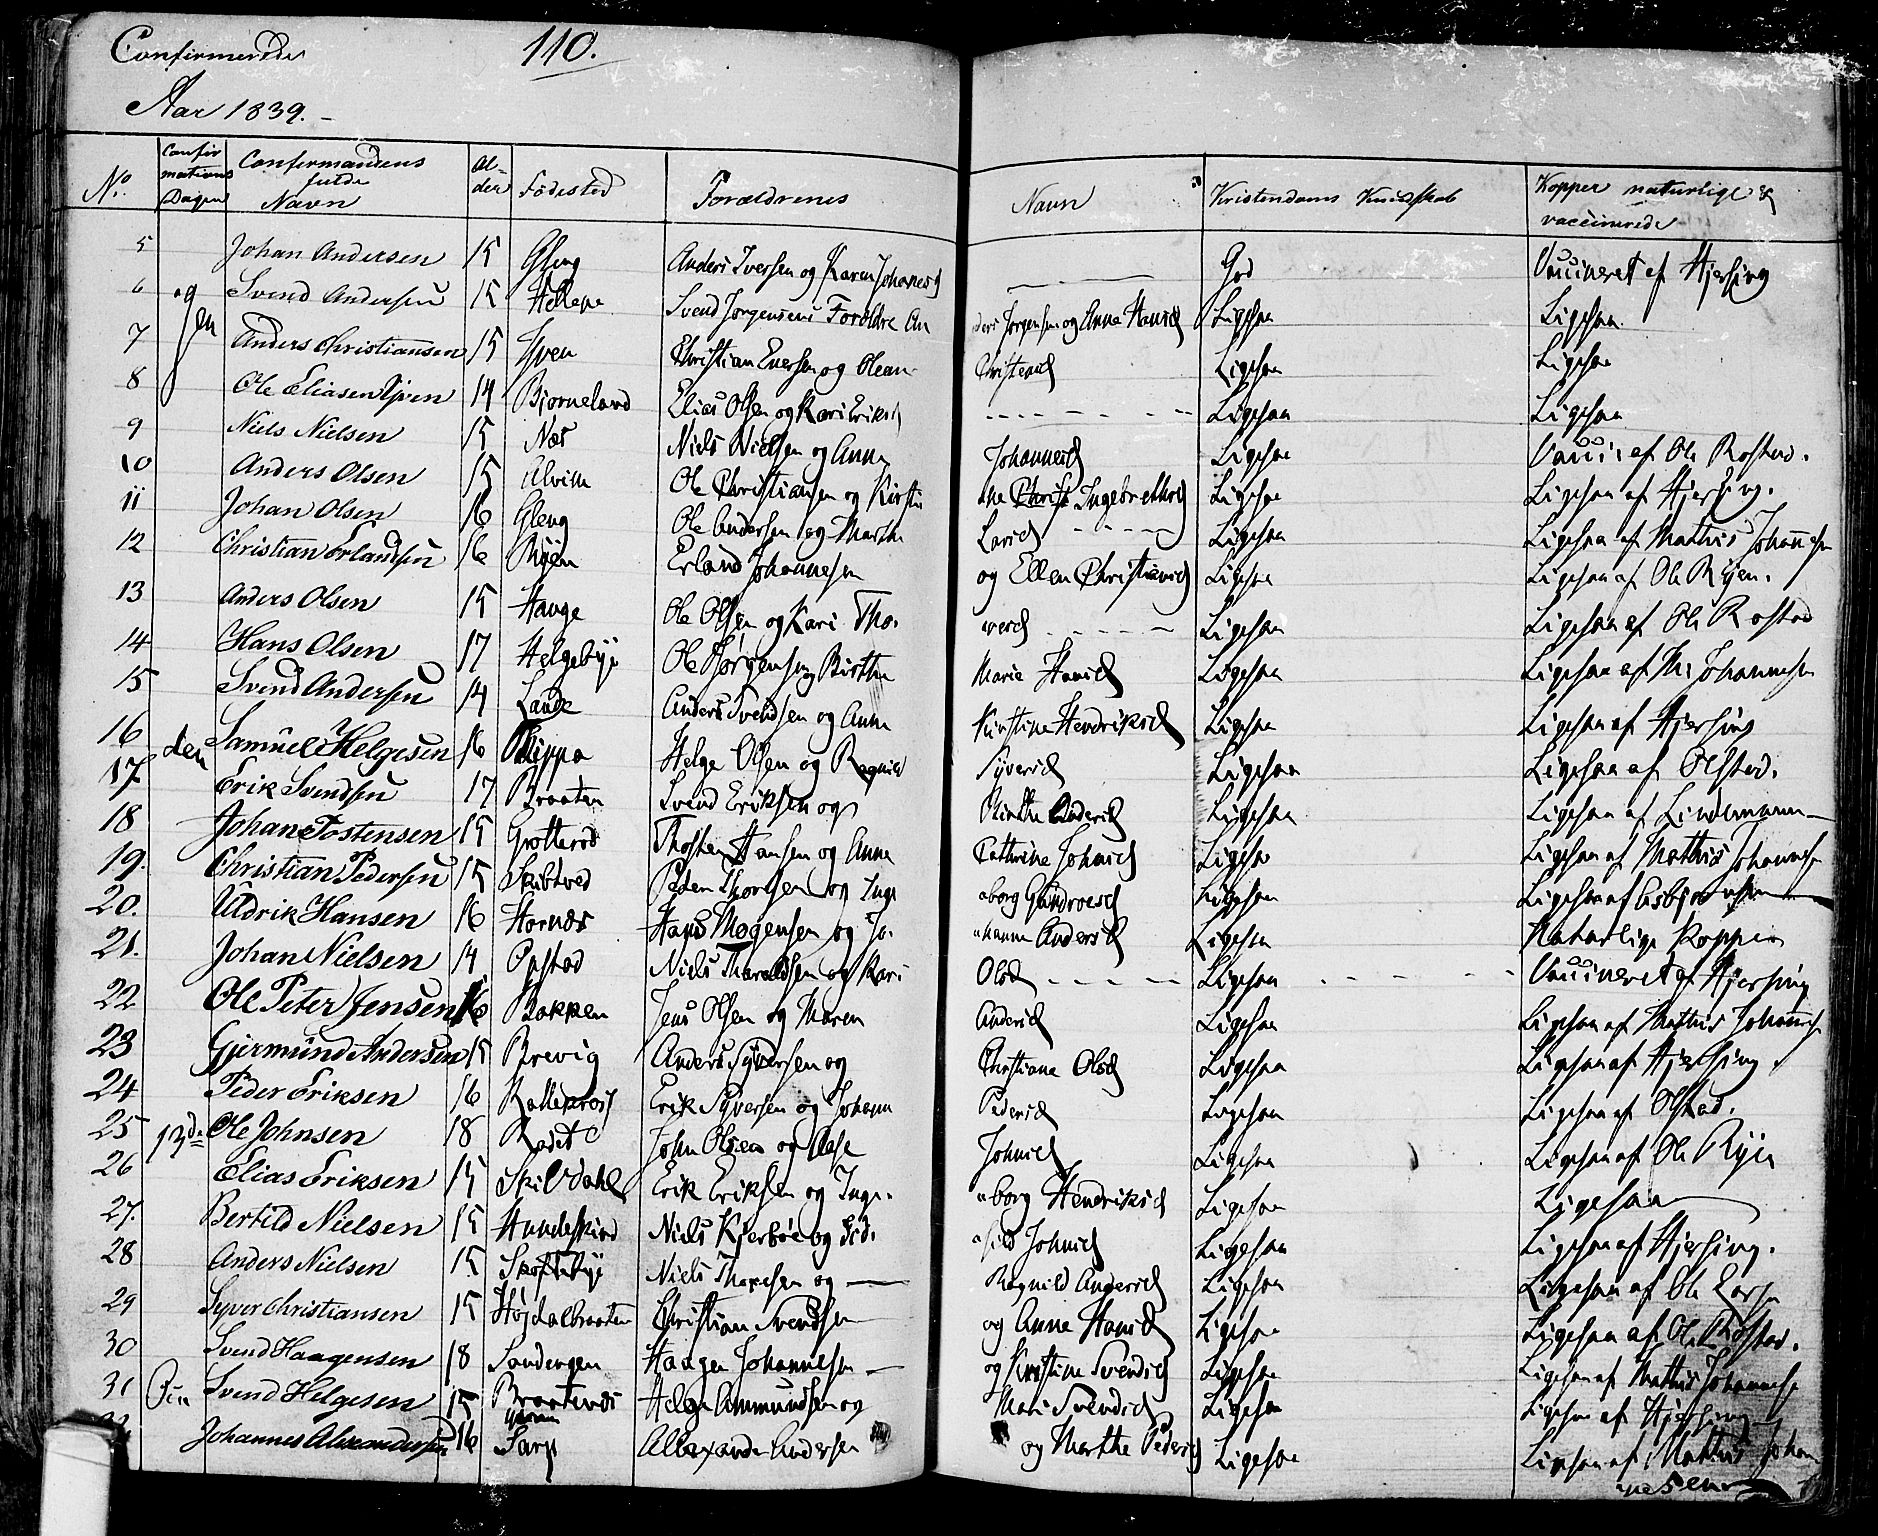 Confirmerede 110.
Aar 1839.
No. Confirmations Dagen Confirmandens fulde Navn Alder Fødested Forældrenes Navn Kristendoms Kundskab Kopper naturlige & vaccinerede
5 Johan Andersen 15 Gleng Anders Iversen og Karen Johannesd God Vaccineret af Hjersing
6 og Svend Andersen 15 Svend Jørgensens Foreldre Anders Jørgensen og Anna Hansd Ligesaa Ligesaa
7 Anders Christiansen 15 Christian Evensen og Christensd Ligesaa Ligesaa
8 Ole Eliasen 14 Bjorneland Elias Olsen og Kari Eriksd Ligesaa Ligesaa
9 Niels Nielsen 15 Næs Niels Nielsen og Anne Johannesd Ligesaa af Ole Rostad.
10 Anders Olsen 15 Ole Christiansen og Kirstine Ingebrethsd Ligesaa Ligesaa af Hjersing.
11 Johan Olsen 16 Gleng Ole Andersen og Marthe Larsd Ligesaa Ligesaa af Mathis Johannesn
12 Christian Erlandsen 16 Erland Johannesen og Ellen Christiansd Ligesaa Ligesaa af Ole Ryen.
13 Anders Olsen 15 Hauge Ole Olsen og Kari Thorversd Ligesaa Ligesaa af Ole Rostad
14 Hans Olsen 17 Helgebye Ole Jørgensen og Birthe Marie Hansd Ligesaa Ligesaa af M. Johannesn
15 Svend Andersen 14 Lande Anders Svendsen og Anne Kirstine Hendriksd Ligesaa Ligesaa af Hjersing
16 den Samuel Helgesen 16 Helge Olsen og Ragnild Syversd Ligesaa Ligesaa af Olstad.
17 Erik Svendsen 17 Braaten Svend Eriksen og Birthe Andersd Ligesaa Ligesaa af Lindemann
18 Johan Tostensen 15 Grotterød Thosten Hansen og Anne Cathrine Johnsd Ligesaa Ligesaa af Mathis Johannesn
19. Christian Pedersen 15 Skibtved Peder Thoresen og Ingeborg Gundroesd Ligesaa Ligesaa af
20. Uldrik Hansen 16 Hornæs Hans Mogensen og Johanne Andersd Ligesaa Naturlige Kopper
21. Johan Nielsen 14 Opstad Niels Tharaldsen og Kari Olsd Ligesaa Vaccineret af Hjersing
22 Ole Peter Jensen 16 Bakken Jens Olsen og Maren Andersd Ligesaa Ligesaa af Mathis Johannesn
23 Gjermund Andersen 15 Brevig Anders Syversen og Christiane Olsd Ligesaa Ligesaa af Hjersing
24 Peder Eriksen 16 Erik Syversen og Johanne Pedersd Ligesaa Ligesaa af Olstad.
25 13de Ole Johnsen 18 John Olsen og Aase Johnsd Ligesaa Ligesaa af Ole Ryen
26 Elias Eriksen 15 Skilsdahl Erik Eriksen og Ingeborg Hendriksd Ligesaa Ligesaa
27. Bertild Nielsen 15 Hundeskind Niels Kjerbøe og Johnsd Ligesaa Ligesaa af Hjersing.
28 Anders Nielsen 15 Skoftebye Niels Thoresen og Ragnild Andersd Ligesaa Ligesaa af Ole Larsn
29 Syver Christiansen 15 Højdalbraaten Christian Svendsen og Anne Hansd Ligesaa Ligesaa af Ole Rostad.
30 Svend Haagensen 18 Sandengen Haagen Johannesen og Kirstine Svendsd Ligesaa Ligesaa af Mathis Johannesn
31 Svend Helgesen 15 Helge Ammundsen og Mari Svendsd Ligesaa Ligesaa af Hjersing
Johannes Alexandersen 16 Sarp Allexander Andersen og Marthe Pedersd Ligesaa Ligesaa af Mathis Johannesen